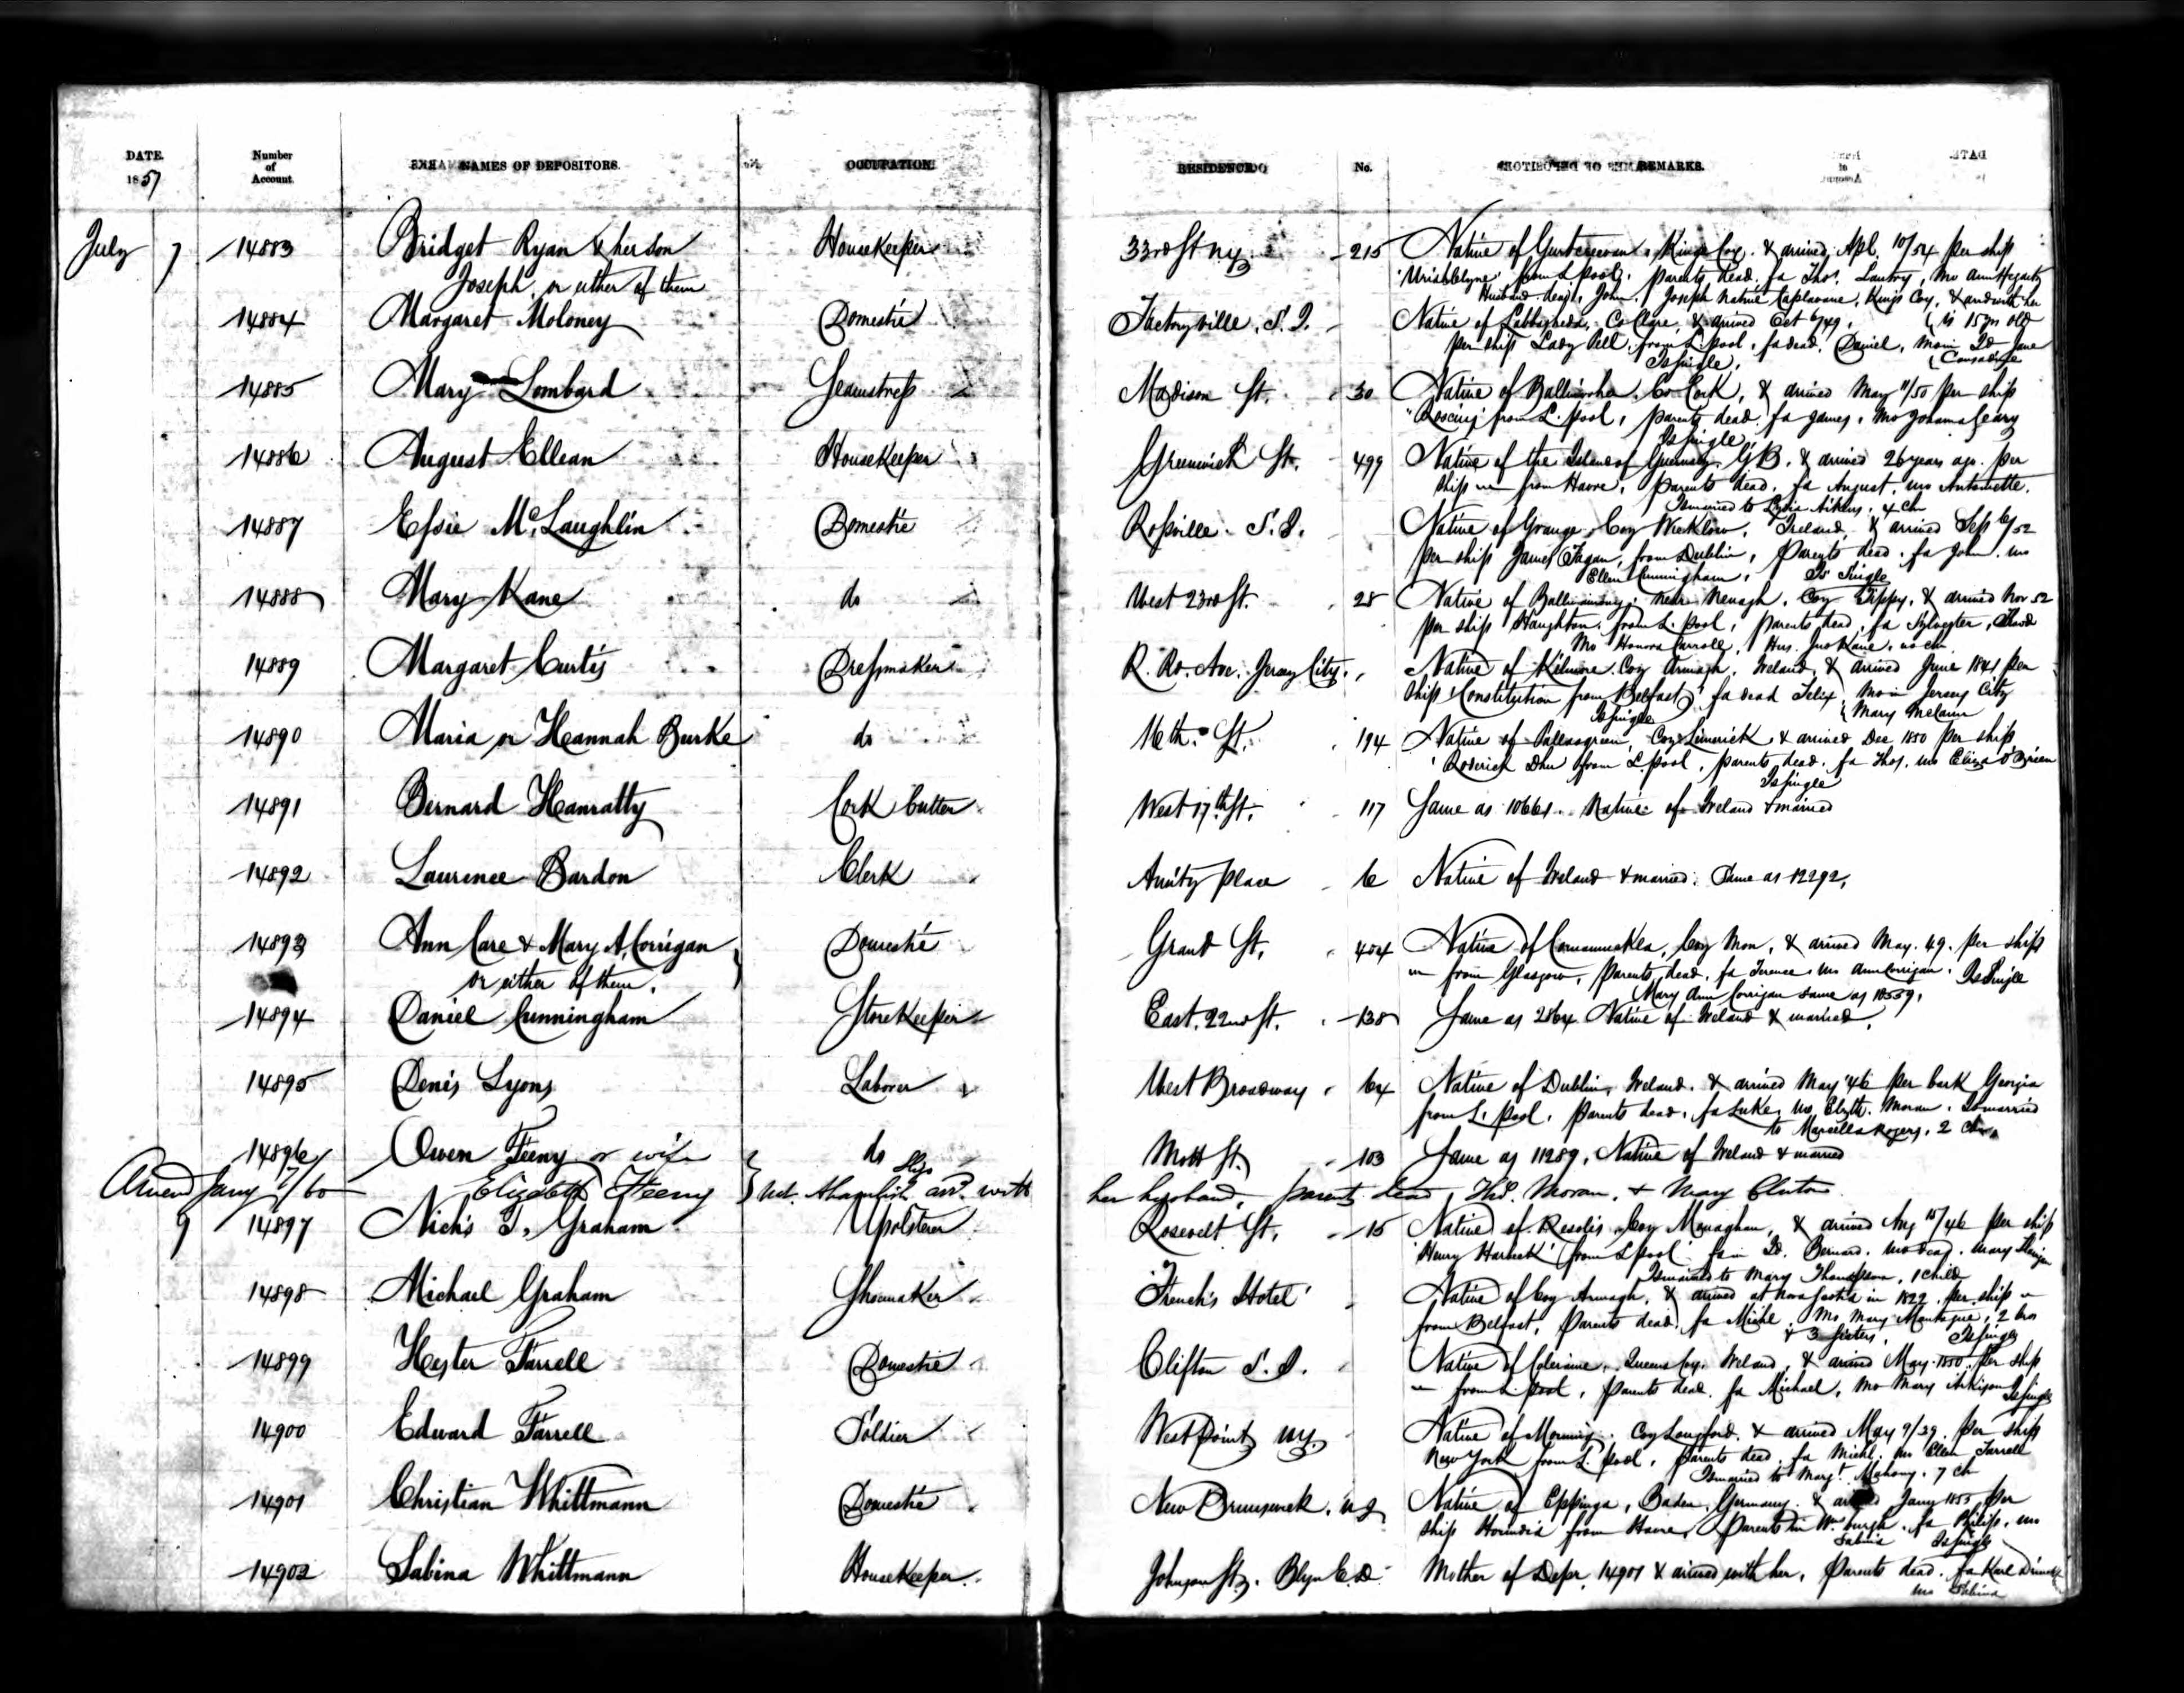 DATE. Number of Account. NAMES OF DEPOSITORS. OCCUPATION. RESIDENCE No. REMARKS.
1857
July 7 14883 Bridget Ryan & her son Housekeeper 33rd St N.Y. 215 Native of Kings Coy. & arrived Apl. 10/54 per ship
Joseph, or either of them from L.pool, parents dead, fa Thos. Mo Ann Hegarty
Husband dead, John, Joseph native Kings Coy, & arrd with her
is 15 yrs old
14884 Margaret Moloney Domestic Factoryville, S.I. Native of Co Clare, & arrived Oct 6/49,
per ship Lady Pell, from L.pool, fa dead, Daniel, Mo in Id Jane
Is single, Considine
14885 Mary Lombard Seamstress Madison St. 30 Native of Co Cork, & arrived May 11/50 per ship
"Roscius" from L.pool, parents dead, fa James, Mo Johanna Geary
Is single
14886 August Ellean Housekeeper Greenwich St. 499 Native of the Island of Guernsey, G.B. & arrived 26 years ago per
ship — from Havre, parents dead, fa August, mo Antoinette.
Is married to Lydia Aikens, 4 ch
14887 Essie McLaughlin Domestic Rossville S.I. Native of Grange, Coy Wicklow, Ireland, & arrived Sep 6/52
per ship James Fagan, from Dublin, Parents dead, fa John, mo
Ellen Cunningham, Is Single
14888 Mary Kane do West 23rd St. 25 Native of near Nenagh, Coy Tippy, & arrived Nov 52
per ship Haughton, from L.pool, parents dead, fa Sylvester,
Mo Honora Carroll, Hus. Jno Kane, no ch
14889 Margaret Curtis Dressmaker R. Rd. Ave. Jersey City. Native of Kilmore Coy Armagh, Ireland, & arrived June 1841 per
ship Constitution from Belfast, fa dead Felix, Mo in Jersey City
Is single Mary McCann
14890 Maria or Hannah Burke do 16th St. 194 Native of Pallasgreen, Coy Limerick & arrived Dec 1850 per ship
'Roderick Dhu' from L.pool, parents dead, fa Thos, mo Eliza O'Brien
Is single
14891 Bernard Hanratty Cork Cutter West 17th St. 117 Same as 10661. Native of Ireland & married
14892 Laurence Bardon Clerk Amity place 6 Native of Ireland & married. Same as 12292,
14893 Ann Care & Mary A. Corrigan Domestic Grand St. 404 Native of Coy Mon, & arrived May. 49. per ship
or either of them. — from Glasgow, Parents dead, fa Terence, mo Ann Corrigan. Is Single
Mary Ann Corrigan same as 10559,
14894 Daniel Cunningham Storekeeper East. 22nd St. 138 Same as 2864 Native of Ireland & married,
14895 Denis Lyons Laborer West Broadway 64 Native of Dublin, Ireland. & arrived May '46 per bark Georgia
from L.pool, parents dead, fa Luke, mo Elizth. Moran. Is married
to Marcella Rogers, 2 ch
14896 Owen Feeny or wife do Mott St. 103 Same as 11289, Native of Ireland & married
Amend Jany 7/60 Elizabeth Feeny Nat. Sligo arrd. with her husband, parents dead, Moran, & Mary Clinton
9 14897 Nichs T. Graham Upolsterer Rosevelt St. 15 Native of Coy Monaghan, & arrived Aug 15/46 per ship
'Henry Harbeck' from L.pool fa in Id. Bernard. mo dead. Mary
Is married to Mary Thompson, 1 child
14898 Michael Graham Shoemaker 'French's Hotel' Native of Coy Armagh, & arrived at Nova Scotia in 1822. per ship —
from Belfast, Parents dead. fa Michl, Mo Mary Montague, 2 bros
& 3 sisters, Is single
14899 Hester Farrell Domestic Clifton S.I. Native of Coleraine, Queens Coy. Ireland, & arrived May 1850. per ship
— from L.pool, parents dead. fa Michael, Mo Mary Atkison Is single
14900 Edward Farrell Soldier West Point N.Y. Native of Coy Longford. & arrived May 9/29. per ship
New York from L.pool, parents dead. fa Michl. mo Ellen Farrell
Is married to Margt. Mahony. 7 ch
14901 Christian Whittmann Domestic New Brunswick. N.J. Native of Eppinga, Baden, Germany. & arrived Jany 1855 per
ship from Havre, Parents in Wm.burgh. fa Philip, mo
Sabina Is single
14902 Sabina Whittmann Housekeeper. Johnson St. Blyn E.D. Mother of Depr. 14901 & arrived with her, Parents dead. fa Karl
mo Sabina